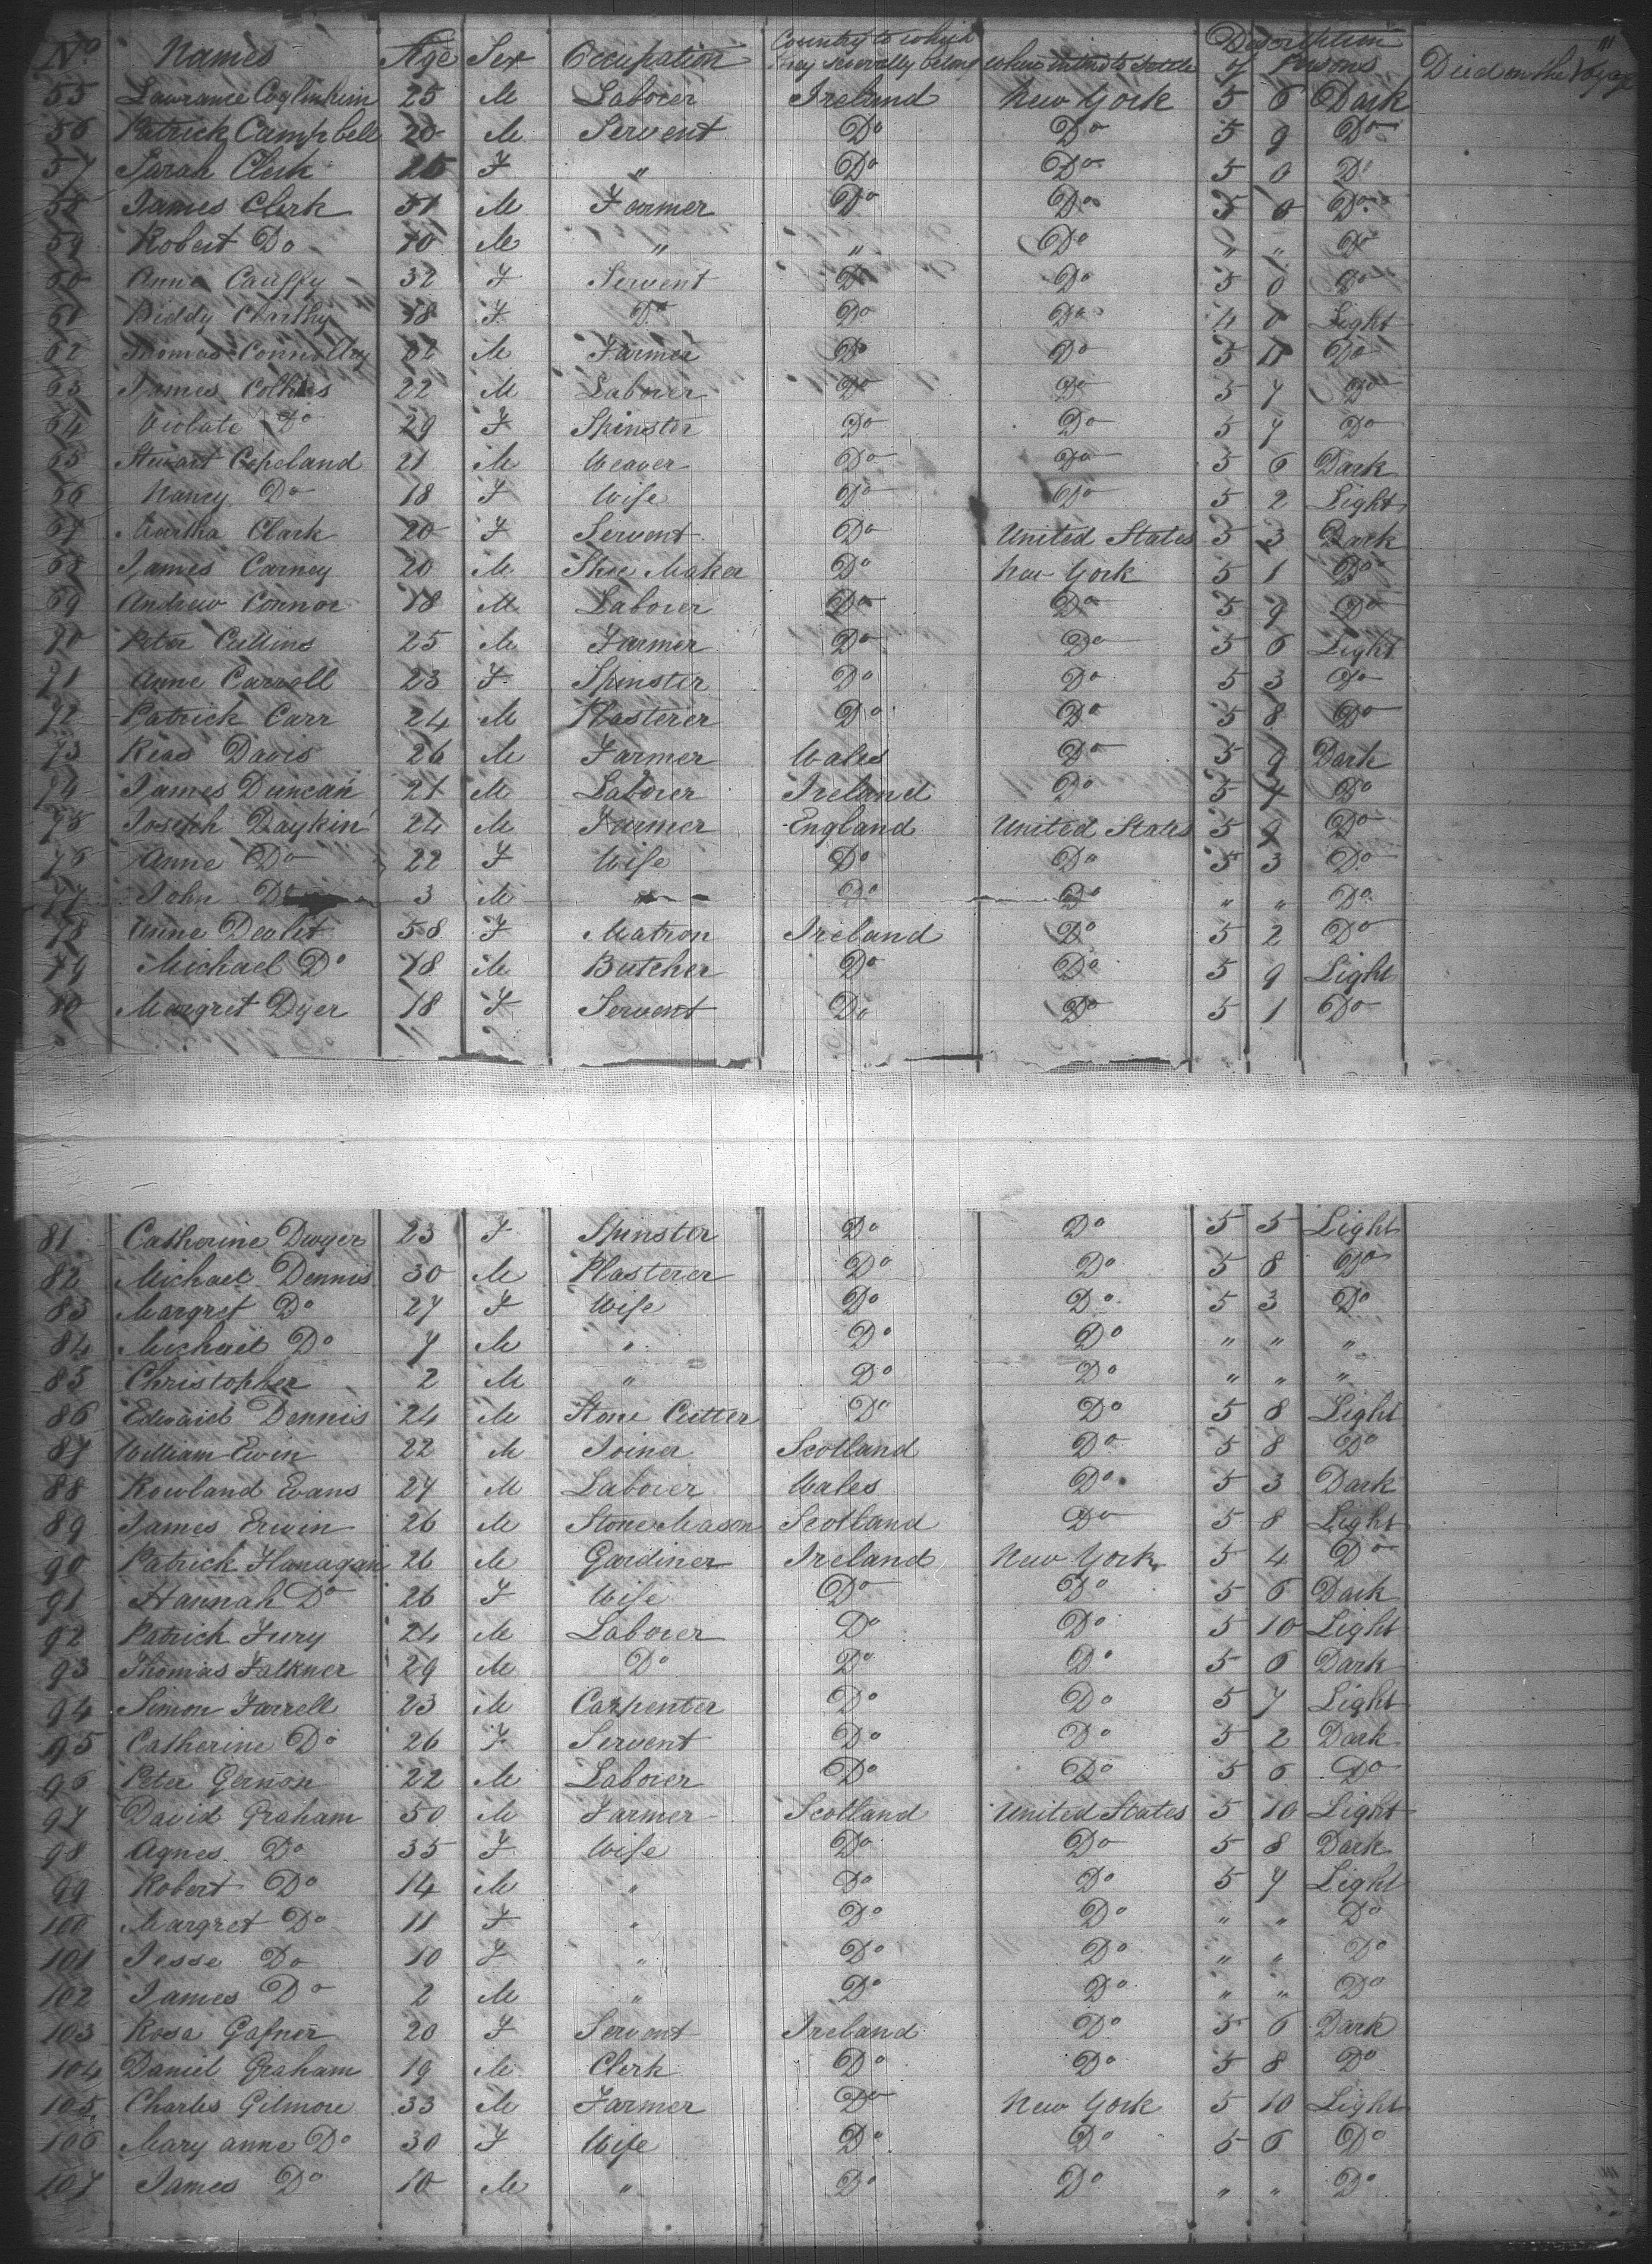 No. Names Age Sex Occupation Country to which they severally belong where intend to settle Description of Persons Died on the Voyage
55 Lawrance 25 M Laborer Ireland New York 5 6 Dark
56 Patrick Campbell 20 M Servent Do Do 5 9 Do
57 Sarah Clerk F " Do Do 5 0 Do
58 James Clerk 51 M Farmer Do Do 5 6 Do
59 Robert Do 10 M " " Do " " Do
60 Anne 32 F Servent Do Do 5 0 Do
61 Biddy 18 F Do Do Do 4 0 Light
62 Thomas Connolley M Farmer Do Do 5 11 Do
63 James Collins 22 M Laborer Do Do 5 7 Do
64 Do 29 F Spinster Do Do 5 7 Do
65 Stewart Copeland 21 M Weaver Do Do 5 6 Dark
66 Nancy Do 18 F Wife Do Do 5 2 Light
67 Martha Clark 20 F Servent Do United States 5 3 Dark
68 James Carney 20 M Shoe Maker Do New York 5 1 Do
69 Andrew Connor 18 M Laborer Do Do 5 9 Do
70 Peter Cullins 25 M Farmer Do Do 5 6 Light
71 Anne Carroll 23 F Spinster Do Do 5 3 Do
72 Patrick Carr 24 M Plasterer Do Do 5 8 Do
73 Davis 26 M Farmer Wales Do 5 9 Dark
74 James Duncan 21 M Laborer Ireland Do 5 7 Do
75 Joseph Daykin 24 M Farmer England United States 5 9 Do
76 Anne Do 22 F Wife Do Do 5 3 Do
77 John Do 3 M Do Do " " Do
78 Anne Devlit 58 F Matron Ireland Do 5 2 Do
79 Michael Do 18 M Butcher Do Do 5 9 Light
80 Margret Dyer 18 F Servent Do Do 5 1 Do
81 Catherine Dwyer 23 F Spinster Do Do 5 5 Light
82 Michael Dennis 30 M Plasterer Do Do 5 8 Do
83 Margret Do 27 F Wife Do Do 5 3 Do
84 Michael Do 7 M " Do Do " " "
85 Christopher 2 M " Do Do " " "
86 Edward Dennis 24 M Stone Cutter Do Do 5 8 Light
87 William Ewin 22 M Joiner Scotland Do 5 8 Do
88 Rowland Evans 27 M Laborer Wales Do 5 3 Dark
89 James Erwin 26 M Stone Mason Scotland Do 5 8 Light
90 Patrick Flanagan 26 M Gardiner Ireland New York 5 4 Do
91 Hannah Do 26 F Wife Do Do 5 6 Dark
92 Patrick Fury 24 M Laborer Do Do 5 10 Light
93 Thomas Falkner 29 M Do Do Do 5 6 Dark
94 Simon Farrell 23 M Carpenter Do Do 5 7 Light
95 Catherine Do 26 F Servent Do Do 5 2 Dark
96 Peter Gernon 22 M Laborer Do Do 5 6 Do
97 David Graham 50 M Farmer Scotland United States 5 10 Light
98 Agnes Do 35 F Wife Do Do 5 8 Dark
99 Robert Do 14 M " Do Do 5 7 Light
100 Margret Do 11 F " Do Do " " Do
101 Jesse Do 10 F " Do Do " " Do
102 James Do 2 M " Do Do " " Do
103 Rosa Gafner 20 F Servent Ireland Do 5 6 Dark
104 Daniel Graham 19 M Clerk Do Do 5 8 Do
105 Charles Gilmore 33 M Farmer Do New York 5 10 Light
106 Mary anne Do 30 F Wife Do Do 5 6 Do
107 James Do 10 M " Do Do " " Do